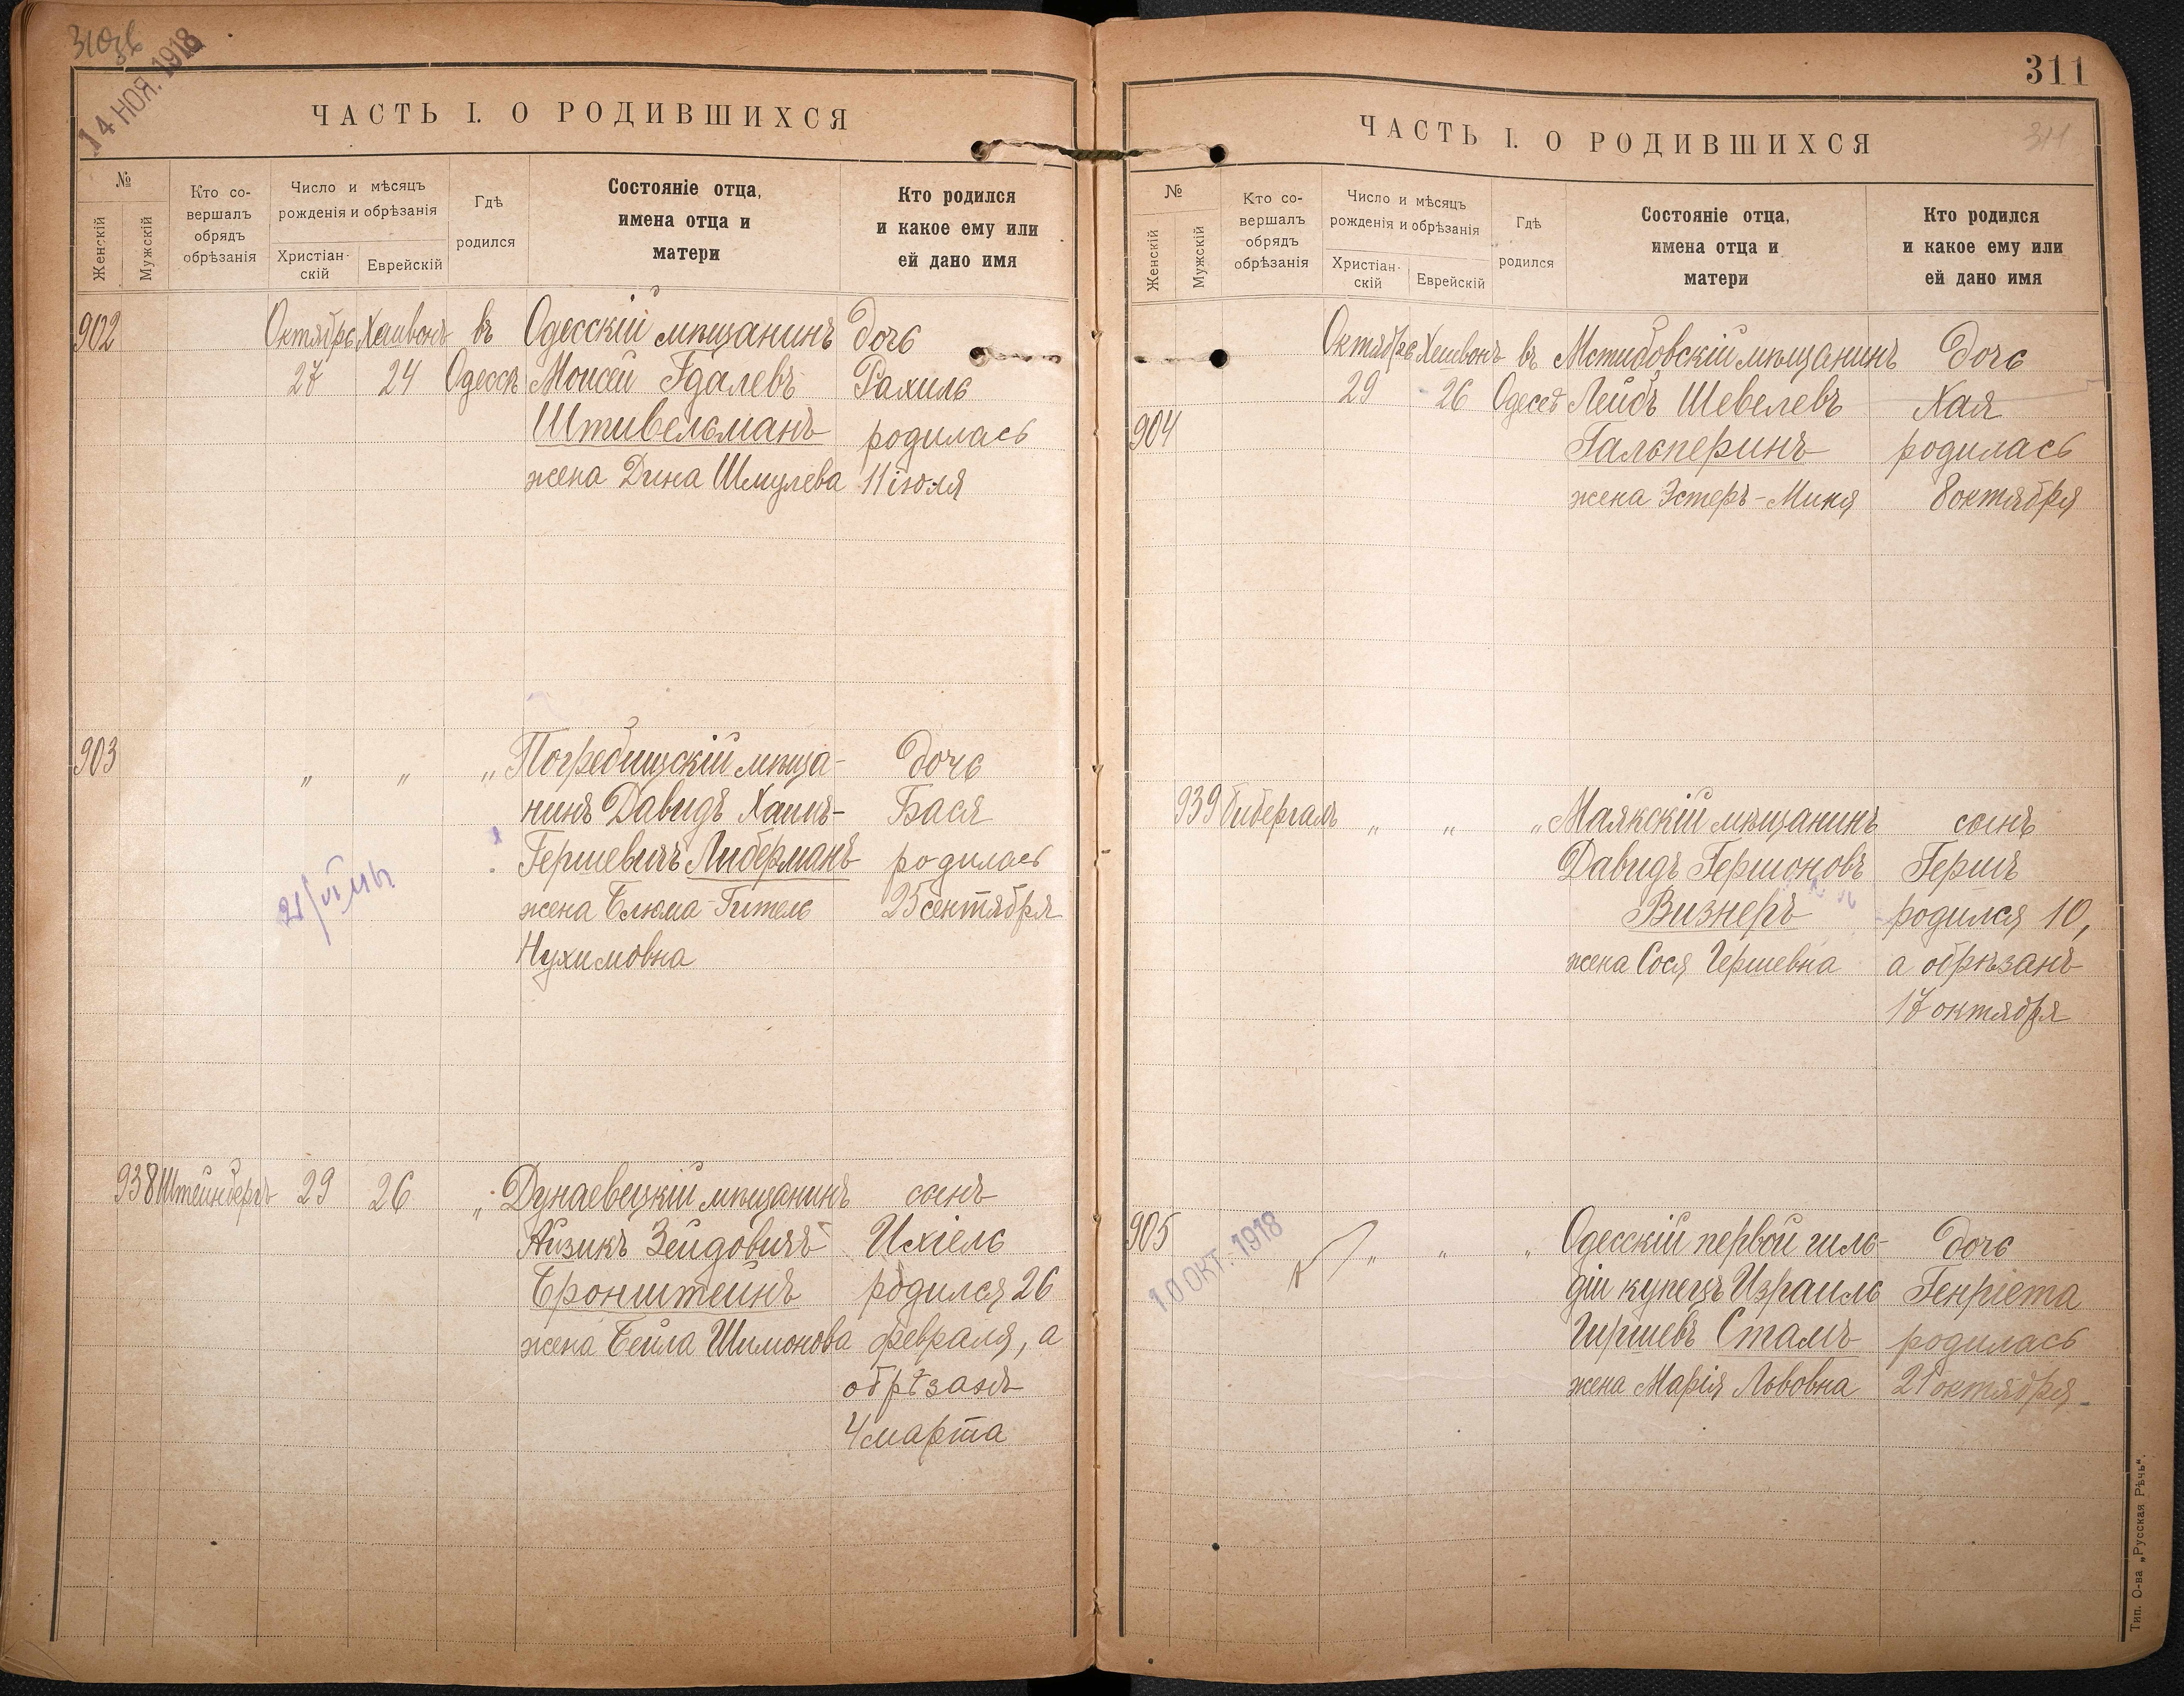 310
14 НОЯ. 1918
ЧАСТЬ I. О РОДИВШИХСЯ
№
Женскій
Мужскій
Кто со-
вершалъ
обрядъ
обрѣзанія
Число и мѣсяцъ
рожденія и обрѣзанія
Христіан-
скій
Еврейскій
Гдѣ
родился
Состояніе отца,
имена отца и
матери
Кто родился
и какое ему или
ей дано имя
902
Октябрь Хешвонъ въ Одесскій мѣщанинъ дочь
27 24 Одессѣ Моисей Гдалевъ Рахиль
Штивельманъ родилась
жена Дина Шмулева 11 іюля
903
„ „ „ Погребищскій мѣща- дочь
нинъ Давидъ Хаимъ- Бася
Гершевичъ Либерманъ родилась
жена Блюма-Гитель 25 сентября
Нухимовна
938 Штейнбергъ 29 26 „ Дунаевецкій мѣщанинъ сынъ
Айзикъ Зейдовичъ Ихіель
Бронштейнъ родился 26
жена Бейла Шимонова февраля, а
обрѣзанъ
4 марта
311
311
ЧАСТЬ I. О РОДИВШИХСЯ
№
Женскій
Мужскій
Кто со-
вершалъ
обрядъ
обрѣзанія
Число и мѣсяцъ
рожденія и обрѣзанія
Христіан-
скій
Еврейскій
Гдѣ
родился
Состояніе отца,
имена отца и
матери
Кто родился
и какое ему или
ей дано имя
Октябрь Хешвонъ въ Мстибовскій мѣщанинъ дочь
29 26 Одессѣ Лейбъ Шевелевъ Хая
904 Гальперинъ родилась
жена Эстеръ-Миня 8 октября
939 Бибергалъ „ „ „ Маякскій мѣщанинъ сынъ
Давидъ Гершоновъ Гершъ
Визнеръ родился 10,
жена Сося Гершевна а обрѣзанъ
17 октября
905 „ „ „ Одесскій первой гиль- дочь
10 ОКТ. 1918
діи купецъ Израиль Генріета
Гиршевъ Стамъ родилась
жена Марія Львовна 21 октября
Тип. О-ва „Русская Рѣчь“.